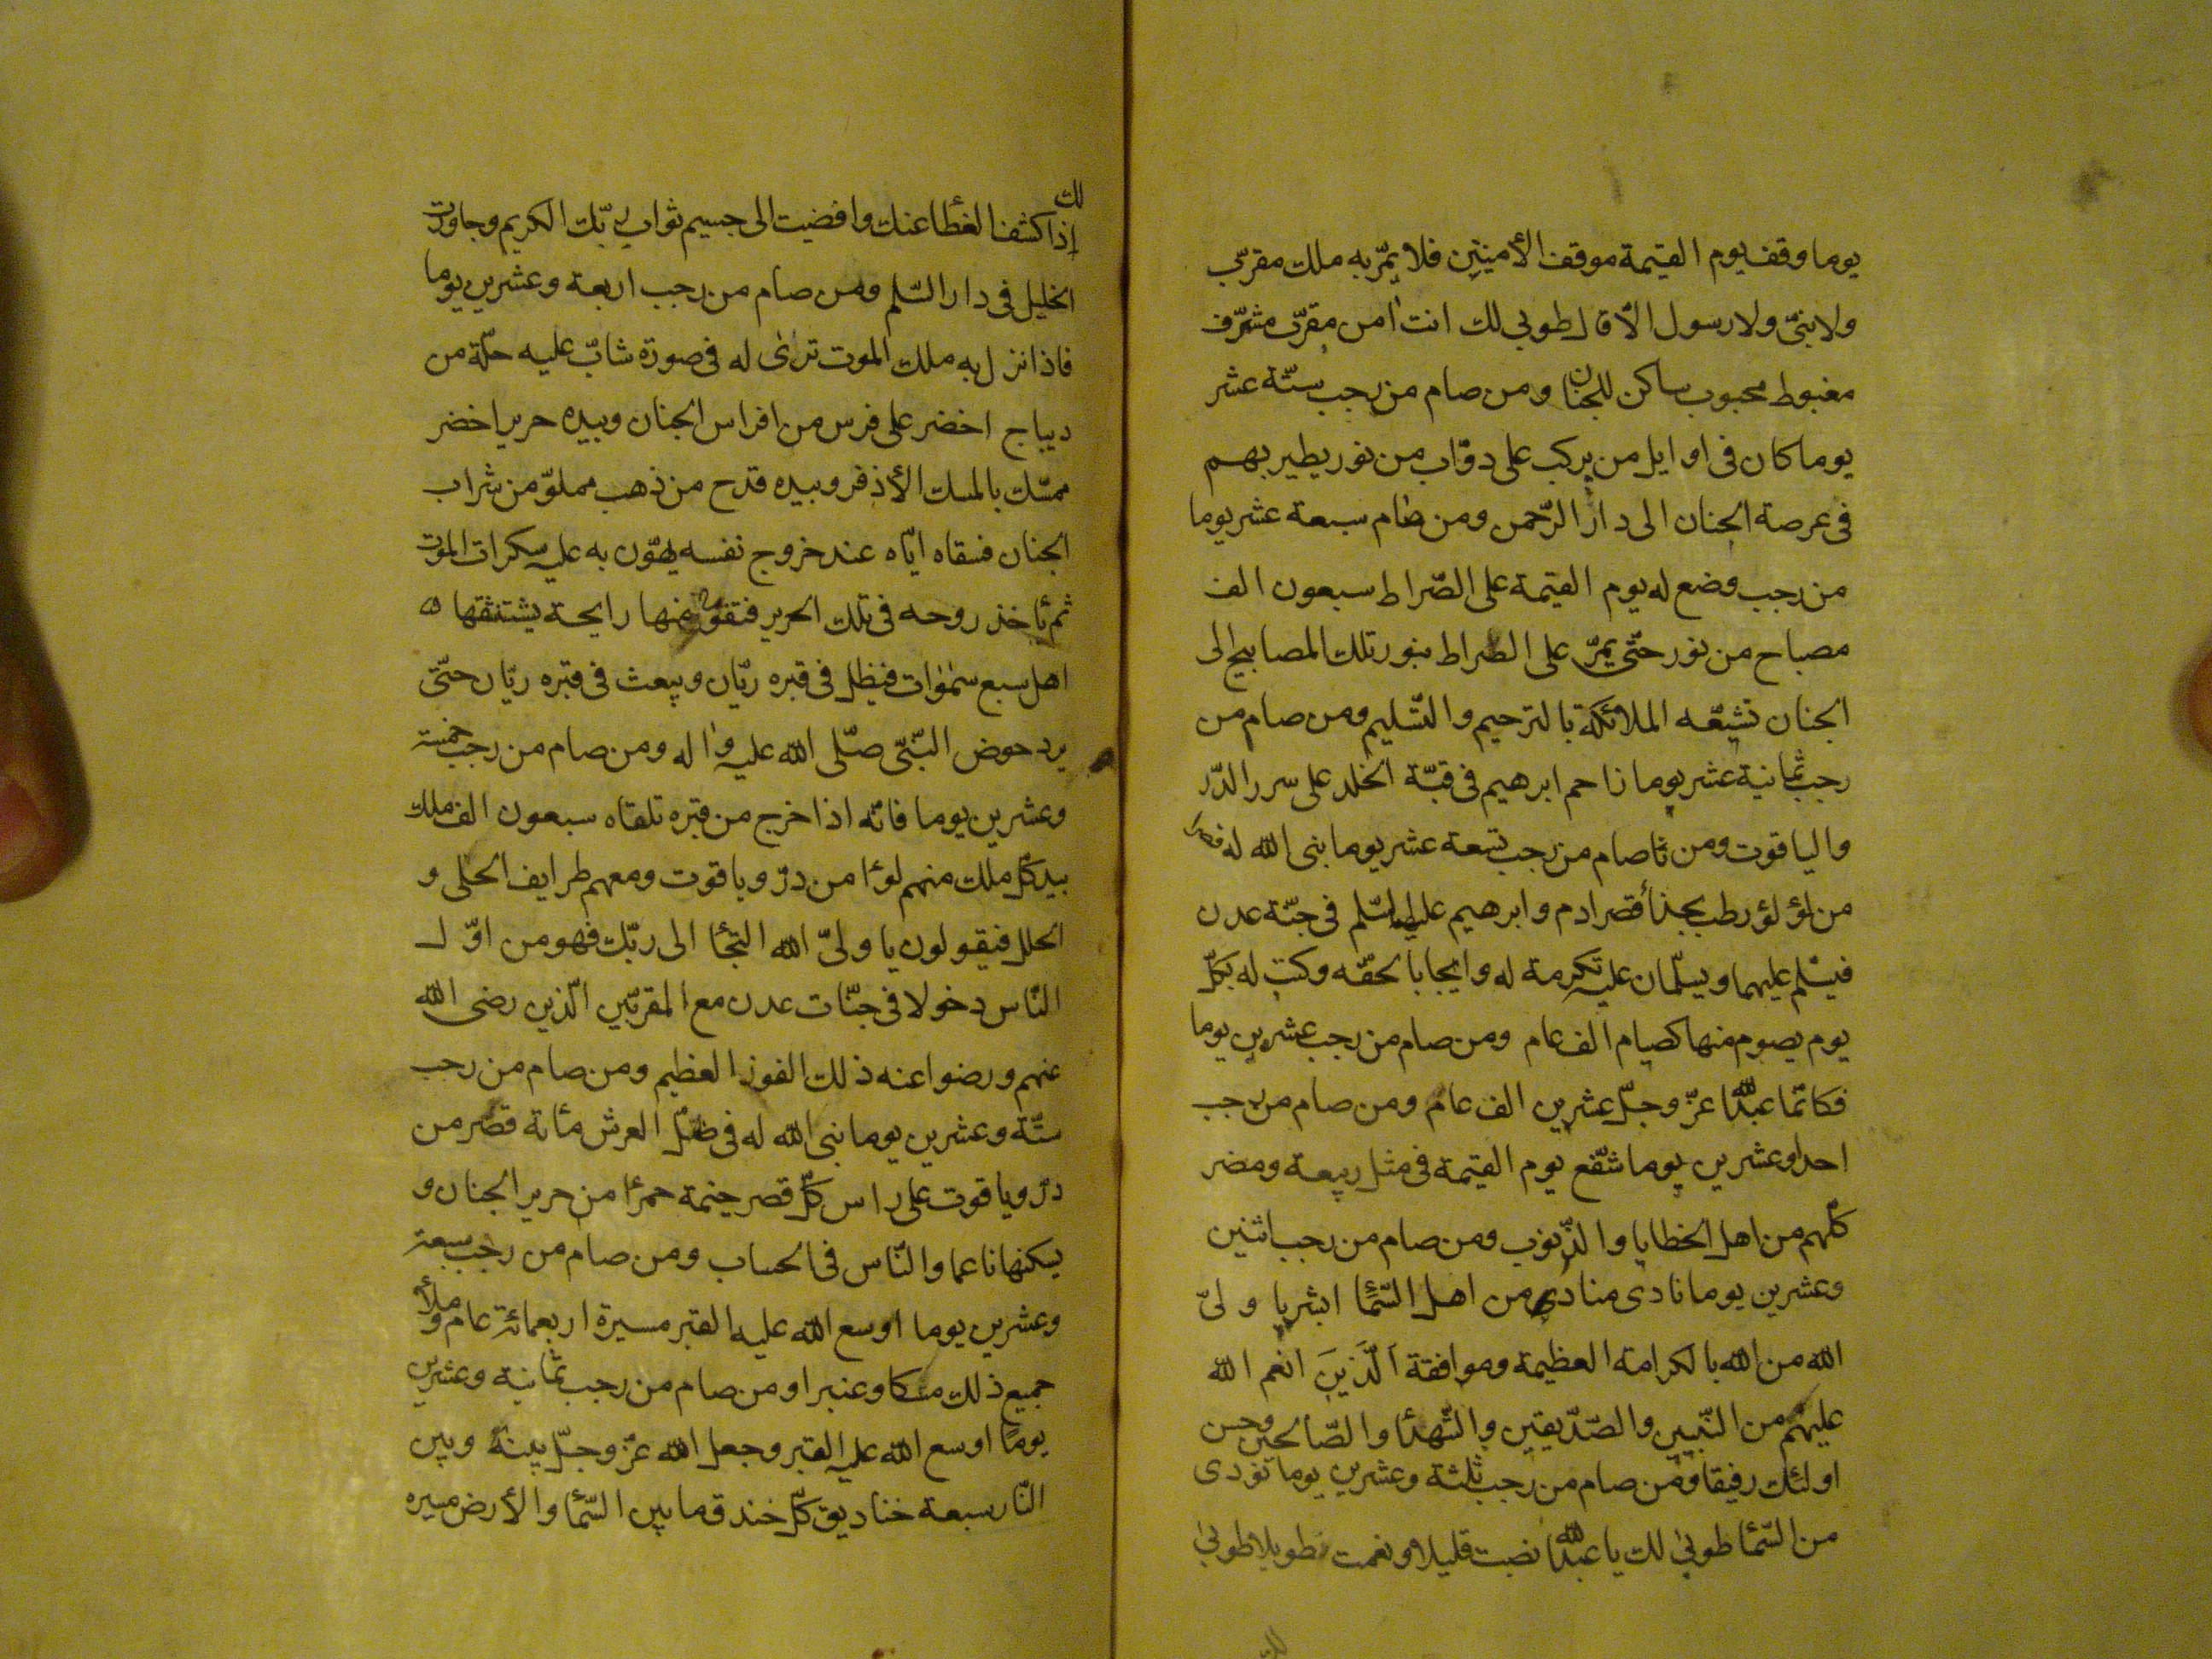 يوما وقف يوم القيمة موقف الأمنين فلا يمرّ به ملك مقرّب
ولا نبىّ ولا رسول الّا قال طوبى لك انت اٰمن مقرّب مشرّف
مغبوط محبوب ساكن للجنان ومن صام من رجب ستّة عشر
يوما كان فى اوايل من يركب على دوّاب من نور يطير بهم
فى عرصة الجنان الى دار الرّحمن ومن صام سبعة عشر يوما
من رجب وضع له يوم القيمة على الصّراط سبعون الف
مصباح من نور حتّى يمرّ على الصراط بنور تلك المصابيح الى
الجنان تشيّعه الملائكة بالترحيم والتّسليم ومن صام من
رجب ثمانية عشر يوما زاحم ابرهيم فى قبّة الخلد على سرر الدّر
والياقوت ومن صام من رجب تسعة عشر يوما بنى الله له قصرا
من لؤلؤ رطب بحذأ قصر ادم وابرهيم عليهما السّلم فى جنّة عدن
فيسلّم عليهما ويسلّمان عليه تكرمة له وايجابا لحقّه وكتب له بكلّ
يوم يصوم منها كصيام الف عام ومن صام من رجب عشرين يوما
فكانّما عبد الله عزّ وجلّ عشرين الف عام ومن صام من رجب
احدا وعشرين يوما شفّع يوم القيمة فى مثل ربيعة ومضر
كلّهم من اهل الخطايا والذّنوب ومن صام من رجب اثنين
وعشرين يوما نادى منادى من اهل السّمأ ابشر يا ولىّ
الله من الله بالكرامة العظيمة وموافقة الّذين انعم الله
عليهم من النّبيين والصّدّيقين والشّهدأ والصّالحين وحسن
اولئك رفيقا ومن صام من رجب ثلثة وعشرين يوما نودى
من السّمأ طوبىٰ لك يا عبد الله نصبت قليلا ونعمت طويلا طوبىٰ
لك
لك
إذا كشف الغطأ عنك وافضيت الى جسيم ثواب ربّك الكريم وجاورت
الخليل فى دار السّلم ومن صام من رجب اربعة وعشرين يوما
فاذا نزل به ملك الموت ترائ له فى صورة شابّ عليه حلّة من
ديباج اخضر على فرس من افراس الجنان وبيده حرير اخضر
ممسّك بالمسك الأذفر وبيده قدح من ذهب مملوّ من شراب
الجنان فسقاه ايّاه عند خروج نفسه يهوّن به عليه سكرات الموت
ثم ياخذ روحه فى تلك الحرير فتفوح منها رايحة يستنشقها
اهل سبع سمٰوات فيظل فى قبره ريّان ويبعث فى قبره ريّان حتّى
يرد حوض النّبىّ صلّى الله عليه واله ومن صام من رجب خمسة
وعشرين يوما فانّه اذا خرج من قبره تلقاه سبعون الف ملك
بيد كلّ ملك منهم لوأ من درّ وياقوت ومعهم طرايف الحلى و
الحلل فيقولون يا ولىّ الله التجأ الى ربّك فهو من اوّل
النّاس دخولا فى جنّات عدن مع المقرّبين الّذين رضى الله
عنهم ورضوا عنه ذلك الفوز العظيم ومن صام من رجب
ستّة وعشرين يوما بنى الله له فى ظلّ العرش مأئة قصر من
درّ وياقوت على راس كلّ قصر خيمة حمرأ من حرير الجنان و
يسكنها ناعما والنّاس فى الحساب ومن صام من رجب سبعة
وعشرين يوما اوسع الله عليه القبر مسيرة اربعمائة عام وملأ
جميع ذلك مسكا وعنبرا ومن صام من رجب ثمانية وعشرين
يوما اوسع الله عليه القبر وجعل الله عزّ وجلّ بينه وبين
النّار سبعة خناديق كلّ خندق ما بين السّمأ والأرض مسيره